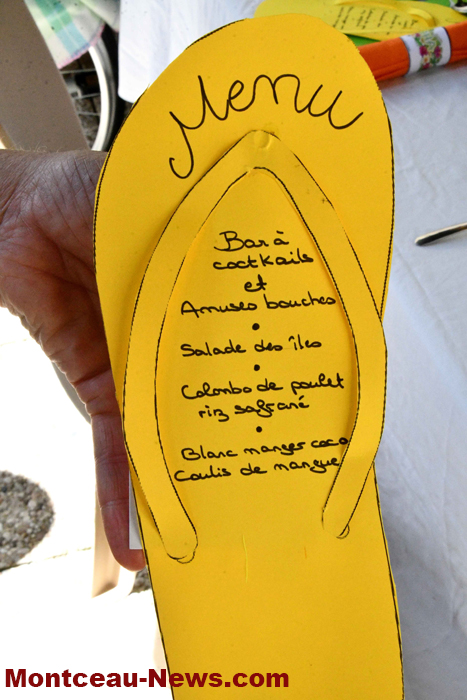 Menu
Bar à
cocktails
et
Amuses bouches
•
Salade des îles
•
Colombo de poulet
riz safrané
•
Blanc manger coco
Coulis de mangue
Montceau-News.com